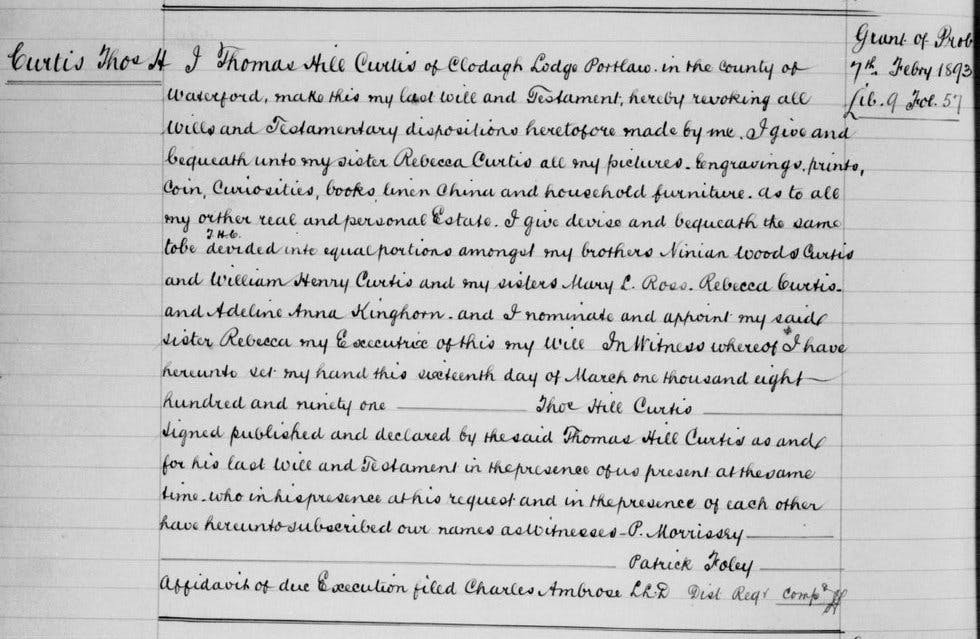 Curtis Thos H I Thomas Hill Curtis of Clodagh Lodge Portlaw. in the county of
Waterford, make this my last will and Testament, hereby revoking all
Wills and Testamentary dispositions heretofore made by me. I give and
bequeath unto my sister Rebecca Curtis all my pictures. Engravings, prints,
Coin, Curiosities, books, linen China and household furniture. as to all
my orther real and personal Estate. I give devise and bequeath the same
T.H.C.
tobe devided into equal portions amongst my brothers Ninian Woods Curtis
and William Henry Curtis and my sisters Mary L. Ross. Rebecca Curtis.
and Adeline Anna Kinghorn. and I nominate and appoint my said
sister Rebecca my Executrix of this my Will In Witness whereof I have
hereunto set my hand this sixteenth day of March one thousand eight
hundred and ninety one Thos Hill Curtis
Signed published and declared by the said Thomas Hill Curtis as and
for his last Will and Testament in the presence of us present at the same
time. who in his presence at his request and in the presence of each other
have hereunto subscribed our names as Witnesses - P. Morrissey
Patrick Foley
Affidavit of due Execution filed Charles Ambrose LL.D Dist Regr Compd
Grant of Prob
7th Febry 1893
Lib. 9 Fol. 57